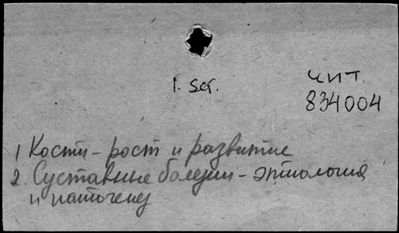 I. ser.
чит.
834004
1 Кости - рост и развитие
2. Суставные болезни - этиология
и патогенез